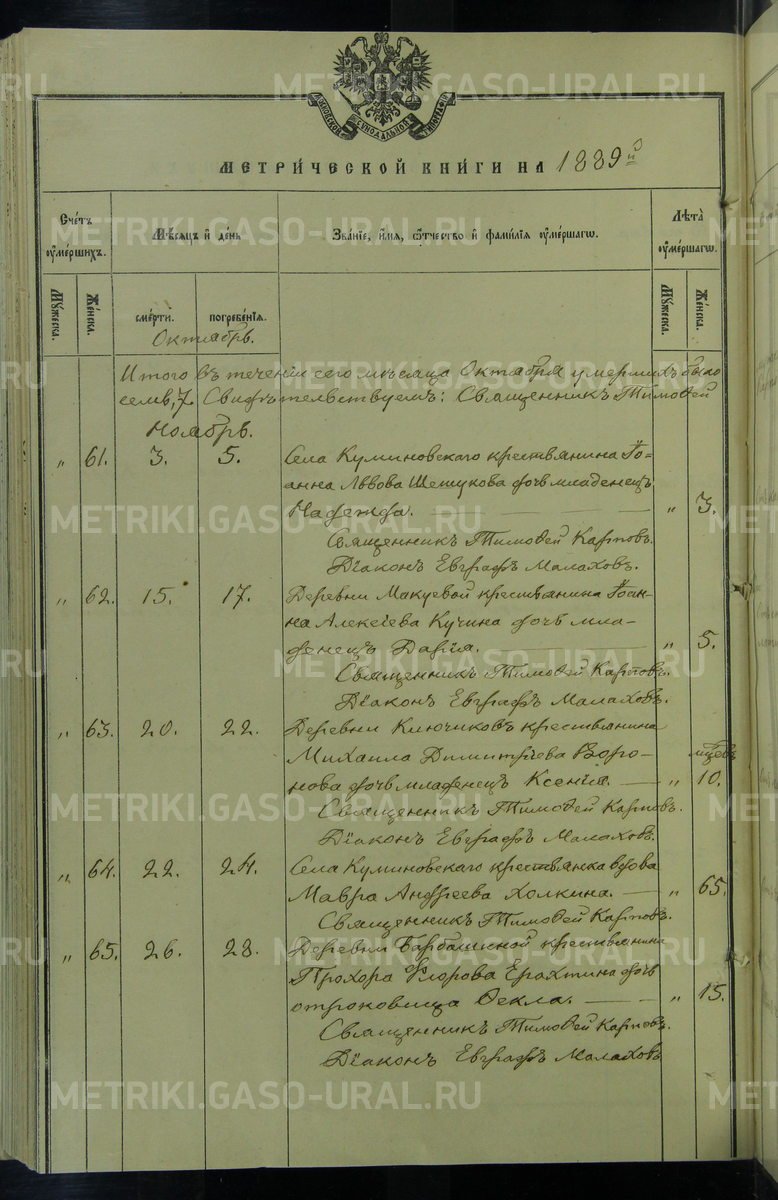 МОСКОВСКОЙ СѴНОДАЛЬНОЙ ТИПОГРАФІИ
МЕТРИ́ЧЕСКОЙ КНИ́ГИ НА 1889 й
Счéтъ ѹ҆мéршихъ.
Мѣ́сяцъ и҆ дéнь
Звáнїе, и҆́мя, ѻ҆́тчество и҆ фамилїя ѹ҆мéршагѡ.
Лѣ́та ѹ҆мéршагѡ.
Мꙋ́жеска.
Жéнска.
смéрти.
погребéнїя.
Мꙋ́жеска.
Жéнска.
Октябрь.
Итого въ теченіи сего мѣсяца Октября умершихъ было
семь, 7. Свидѣтельствуемъ: Священникъ Тимоѳей
Ноябрь.
„ 61. 3. 5. Села Куминовскаго крестьянина Іо-
анна Львова Шешукова дочь младенецъ
Надежда. — „ 3.
Священникъ Тимоѳей Карповъ.
Діаконъ Евграфъ Малаховъ.
„ 62. 15. 17. Деревни Макуевой крестьянина Іоан-
на Алексіева Кучина дочь мла-
денецъ Дарія. — „ 5.
Священникъ Тимоѳей Карповъ.
Діаконъ Евграфъ Малаховъ.
„ 63. 20. 22. Деревни Ключиковъ крестьянина
Михаила Димитріева Воро- мцевъ
нова дочь младенецъ Ксенія. — „ 10.
Священникъ Тимоѳей Карповъ.
Діаконъ Евграфъ Малаховъ.
„ 64. 22. 24. Села Куминовскаго крестьянка вдова
Мавра Андреева Холкина. — „ 65.
Священникъ Тимоѳей Карповъ.
„ 65. 26. 28. Деревни Барбашиной крестьянина
Прохора Флорова Ерахтина дочь
отроковица Ѳекла. — „ 15.
Священникъ Тимоѳей Карповъ.
Діаконъ Евграфъ Малаховъ
METRIKI.GASO-URAL.RU